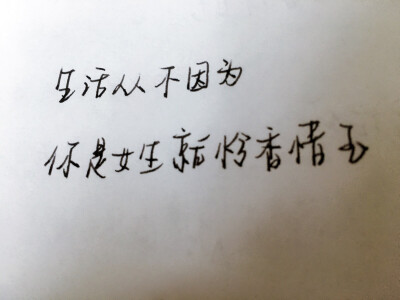 生活从不因为
你是女生就怜香惜玉